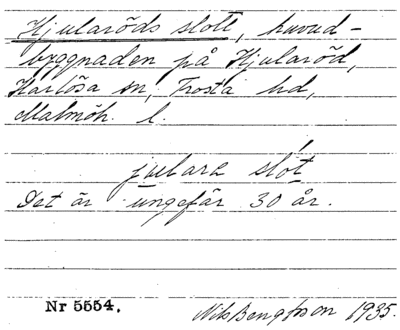 Hjularöds slott, huvud-
byggnaden på Hjularöd,
Harlösa sn, Frosta hd,
Malmöh. l.
julara slót
Det är ungefär 30 år.
Nr 5554. Nils Bengtsson 1935.